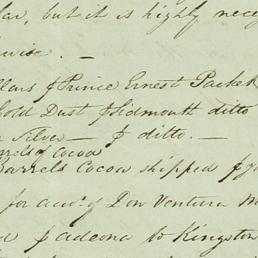 but it is highly
wise. —
Prince Ernest Packet
Gold Dust p Sidmouth ditto
Silver — p ditto. —
of Cocoa
Barrels Cocoa shipped p
for acco. of Don Ventura
p adeona to Kingston